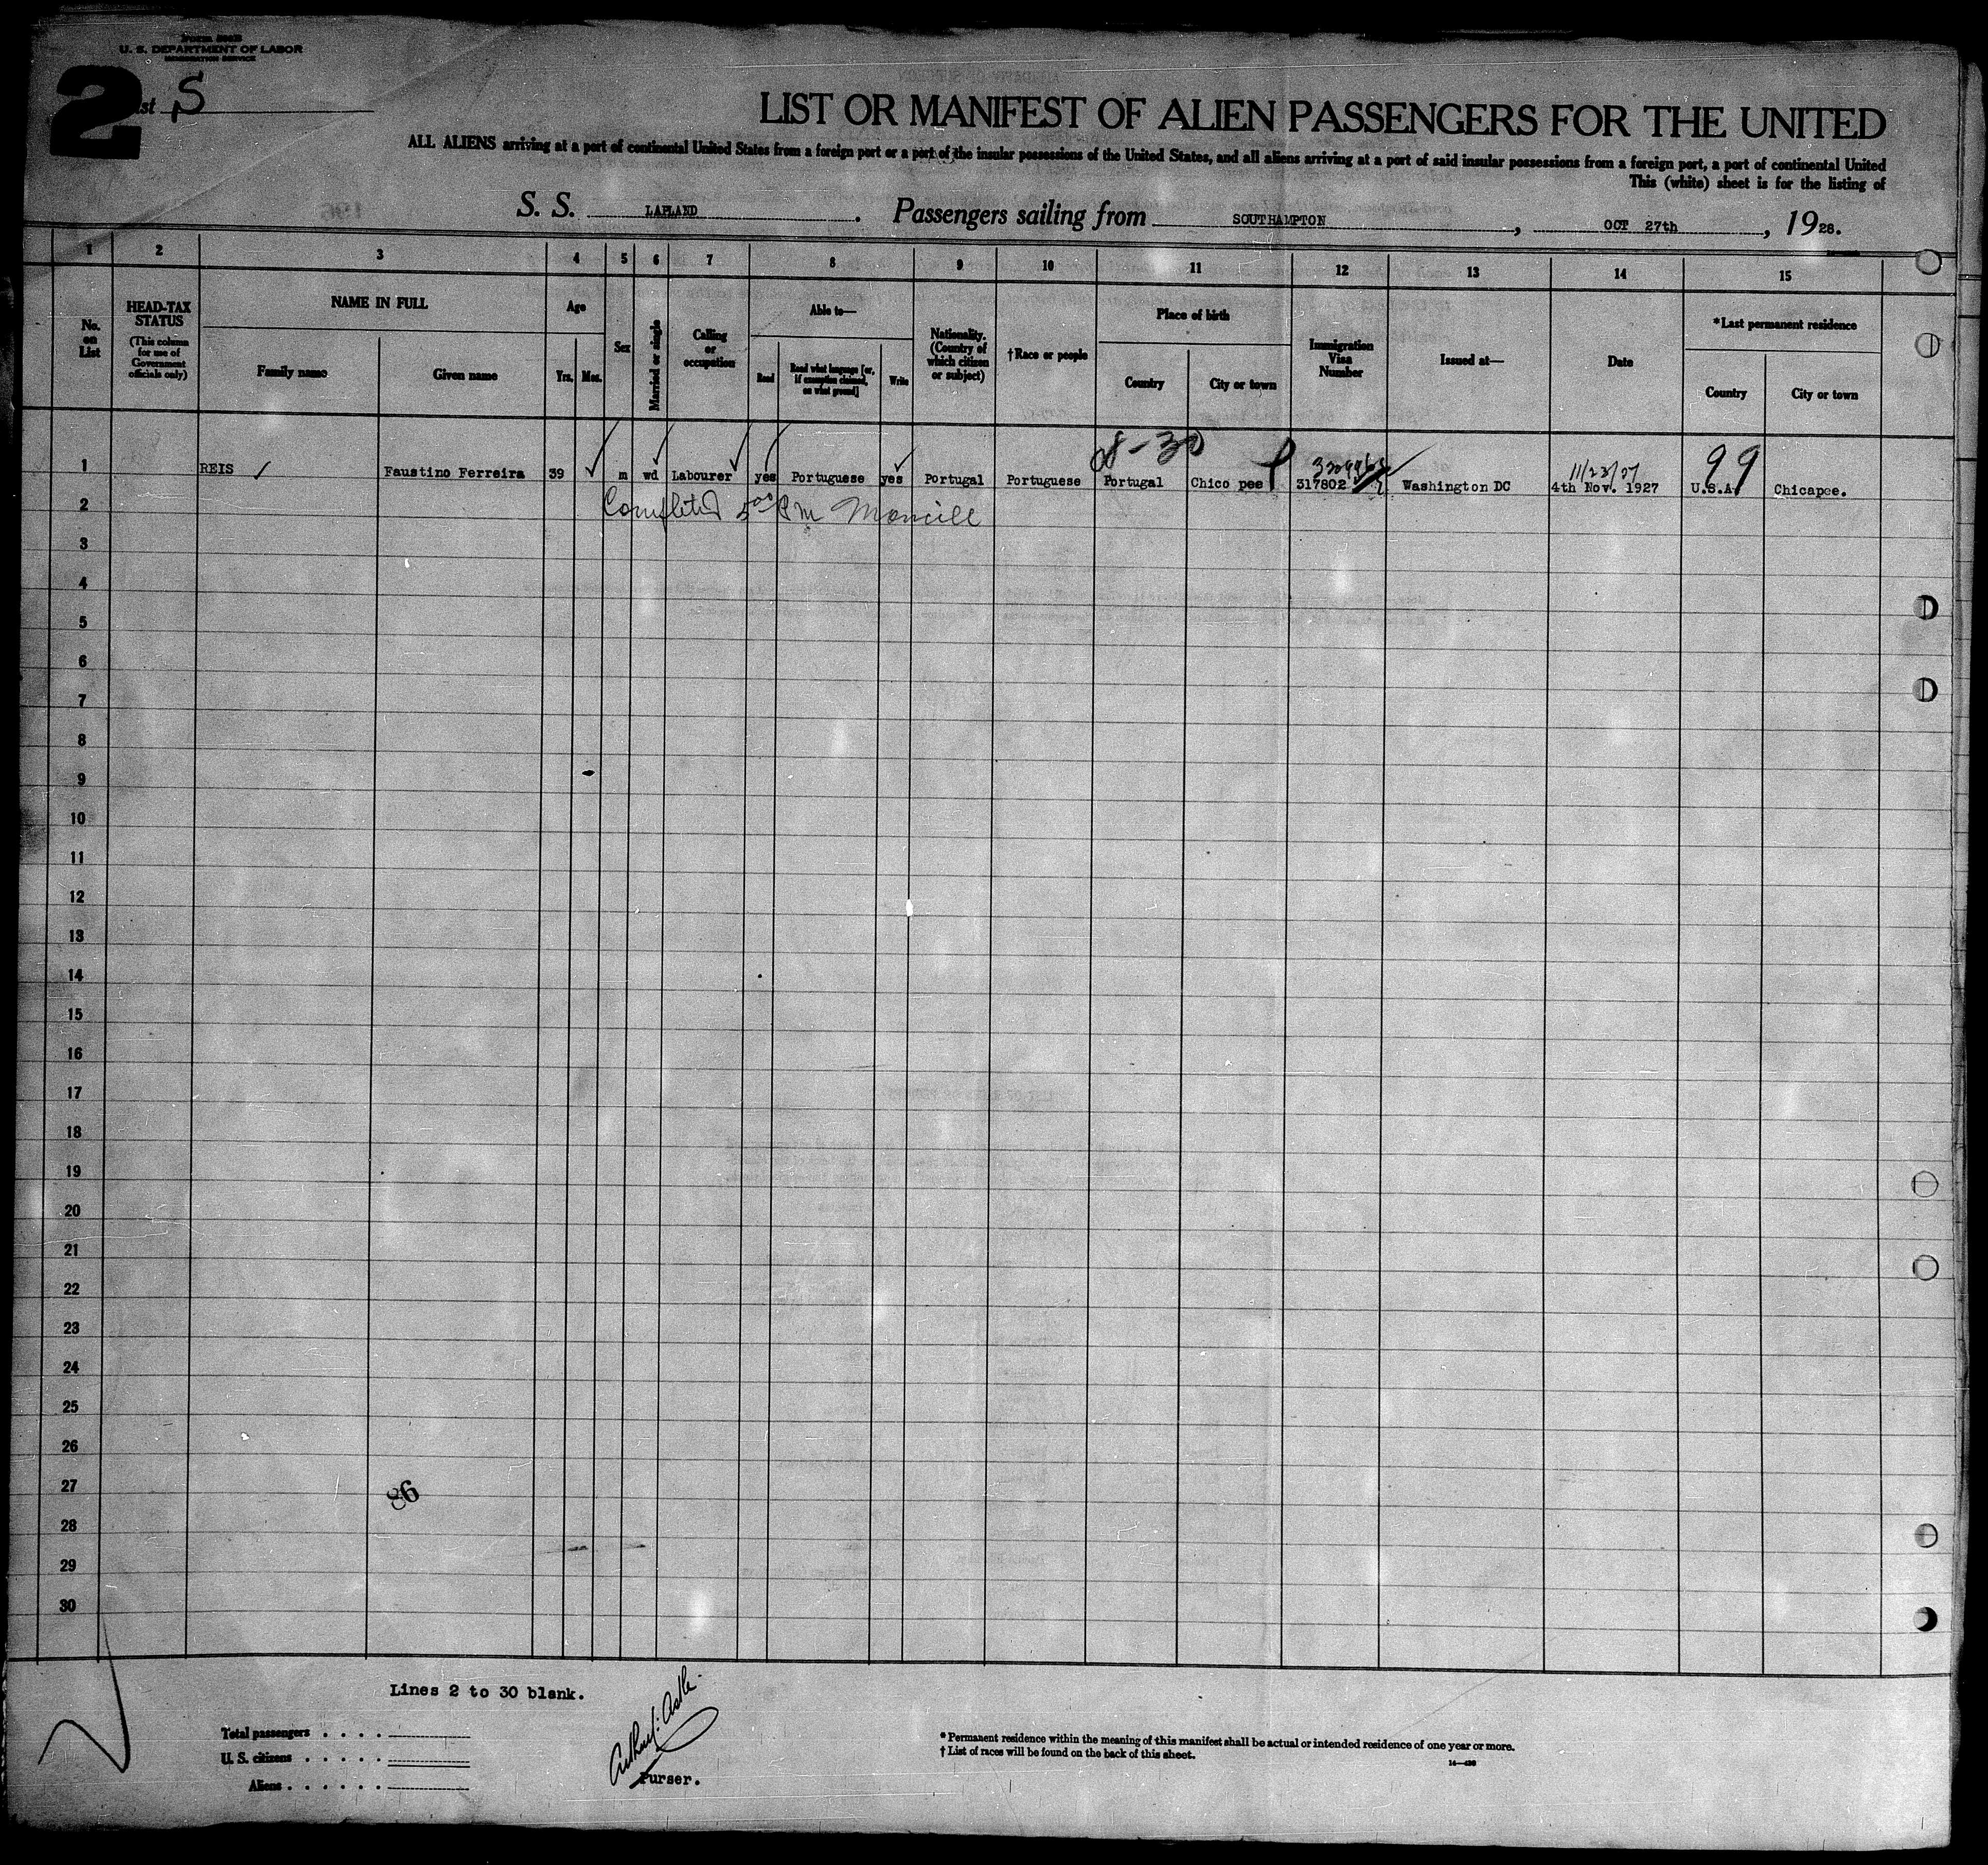 U. S. DEPARTMENT OF LABOR
IMMIGRATION SERVICE
2 S
LIST OR MANIFEST OF ALIEN PASSENGERS FOR THE UNITED
ALL ALIENS arriving at a port of continental United States from a foreign port or a port of the insular possessions of the United States, and all aliens arriving at a port of said insular possessions from a foreign port, a port of continental United
This (white) sheet is for the listing of
S. S. LAPLAND. Passengers sailing from SOUTHAMPTON, OCT 27th, 1928.
1 2 3 4 5 6 7 8 9 10 11 12 13 14 15
No. on List
HEAD-TAX STATUS
(This column for use of Government officials only)
NAME IN FULL
Family name
Given name
Age
Yrs. Mos.
Sex
Married or single
Calling or occupation
Able to—
Read
Read what language [or, if exemption claimed, on what ground]
Write
Nationality. (Country of which citizen or subject)
†Race or people
Place of birth
Country
City or town
Immigration Visa Number
Issued at—
Date
*Last permanent residence
Country
City or town
8-30
11/23/27
99
1 REIS Faustino Ferreira 39 m wd Labourer yes Portuguese yes Portugal Portuguese Portugal Chico pee 317802 Washington DC 4th Nov. 1927 U.S.A. Chicapee.
Completed 5 00 PM
2
3
4
5
6
7
8
9
10
11
12
13
14
15
16
17
18
19
20
21
22
23
24
25
26
27
86
28
29
30
Lines 2 to 30 blank.
Total passengers . . . .
U. S. citizens . . . . .
Aliens . . . . . .
Purser.
* Permanent residence within the meaning of this manifest shall be actual or intended residence of one year or more.
† List of races will be found on the back of this sheet.